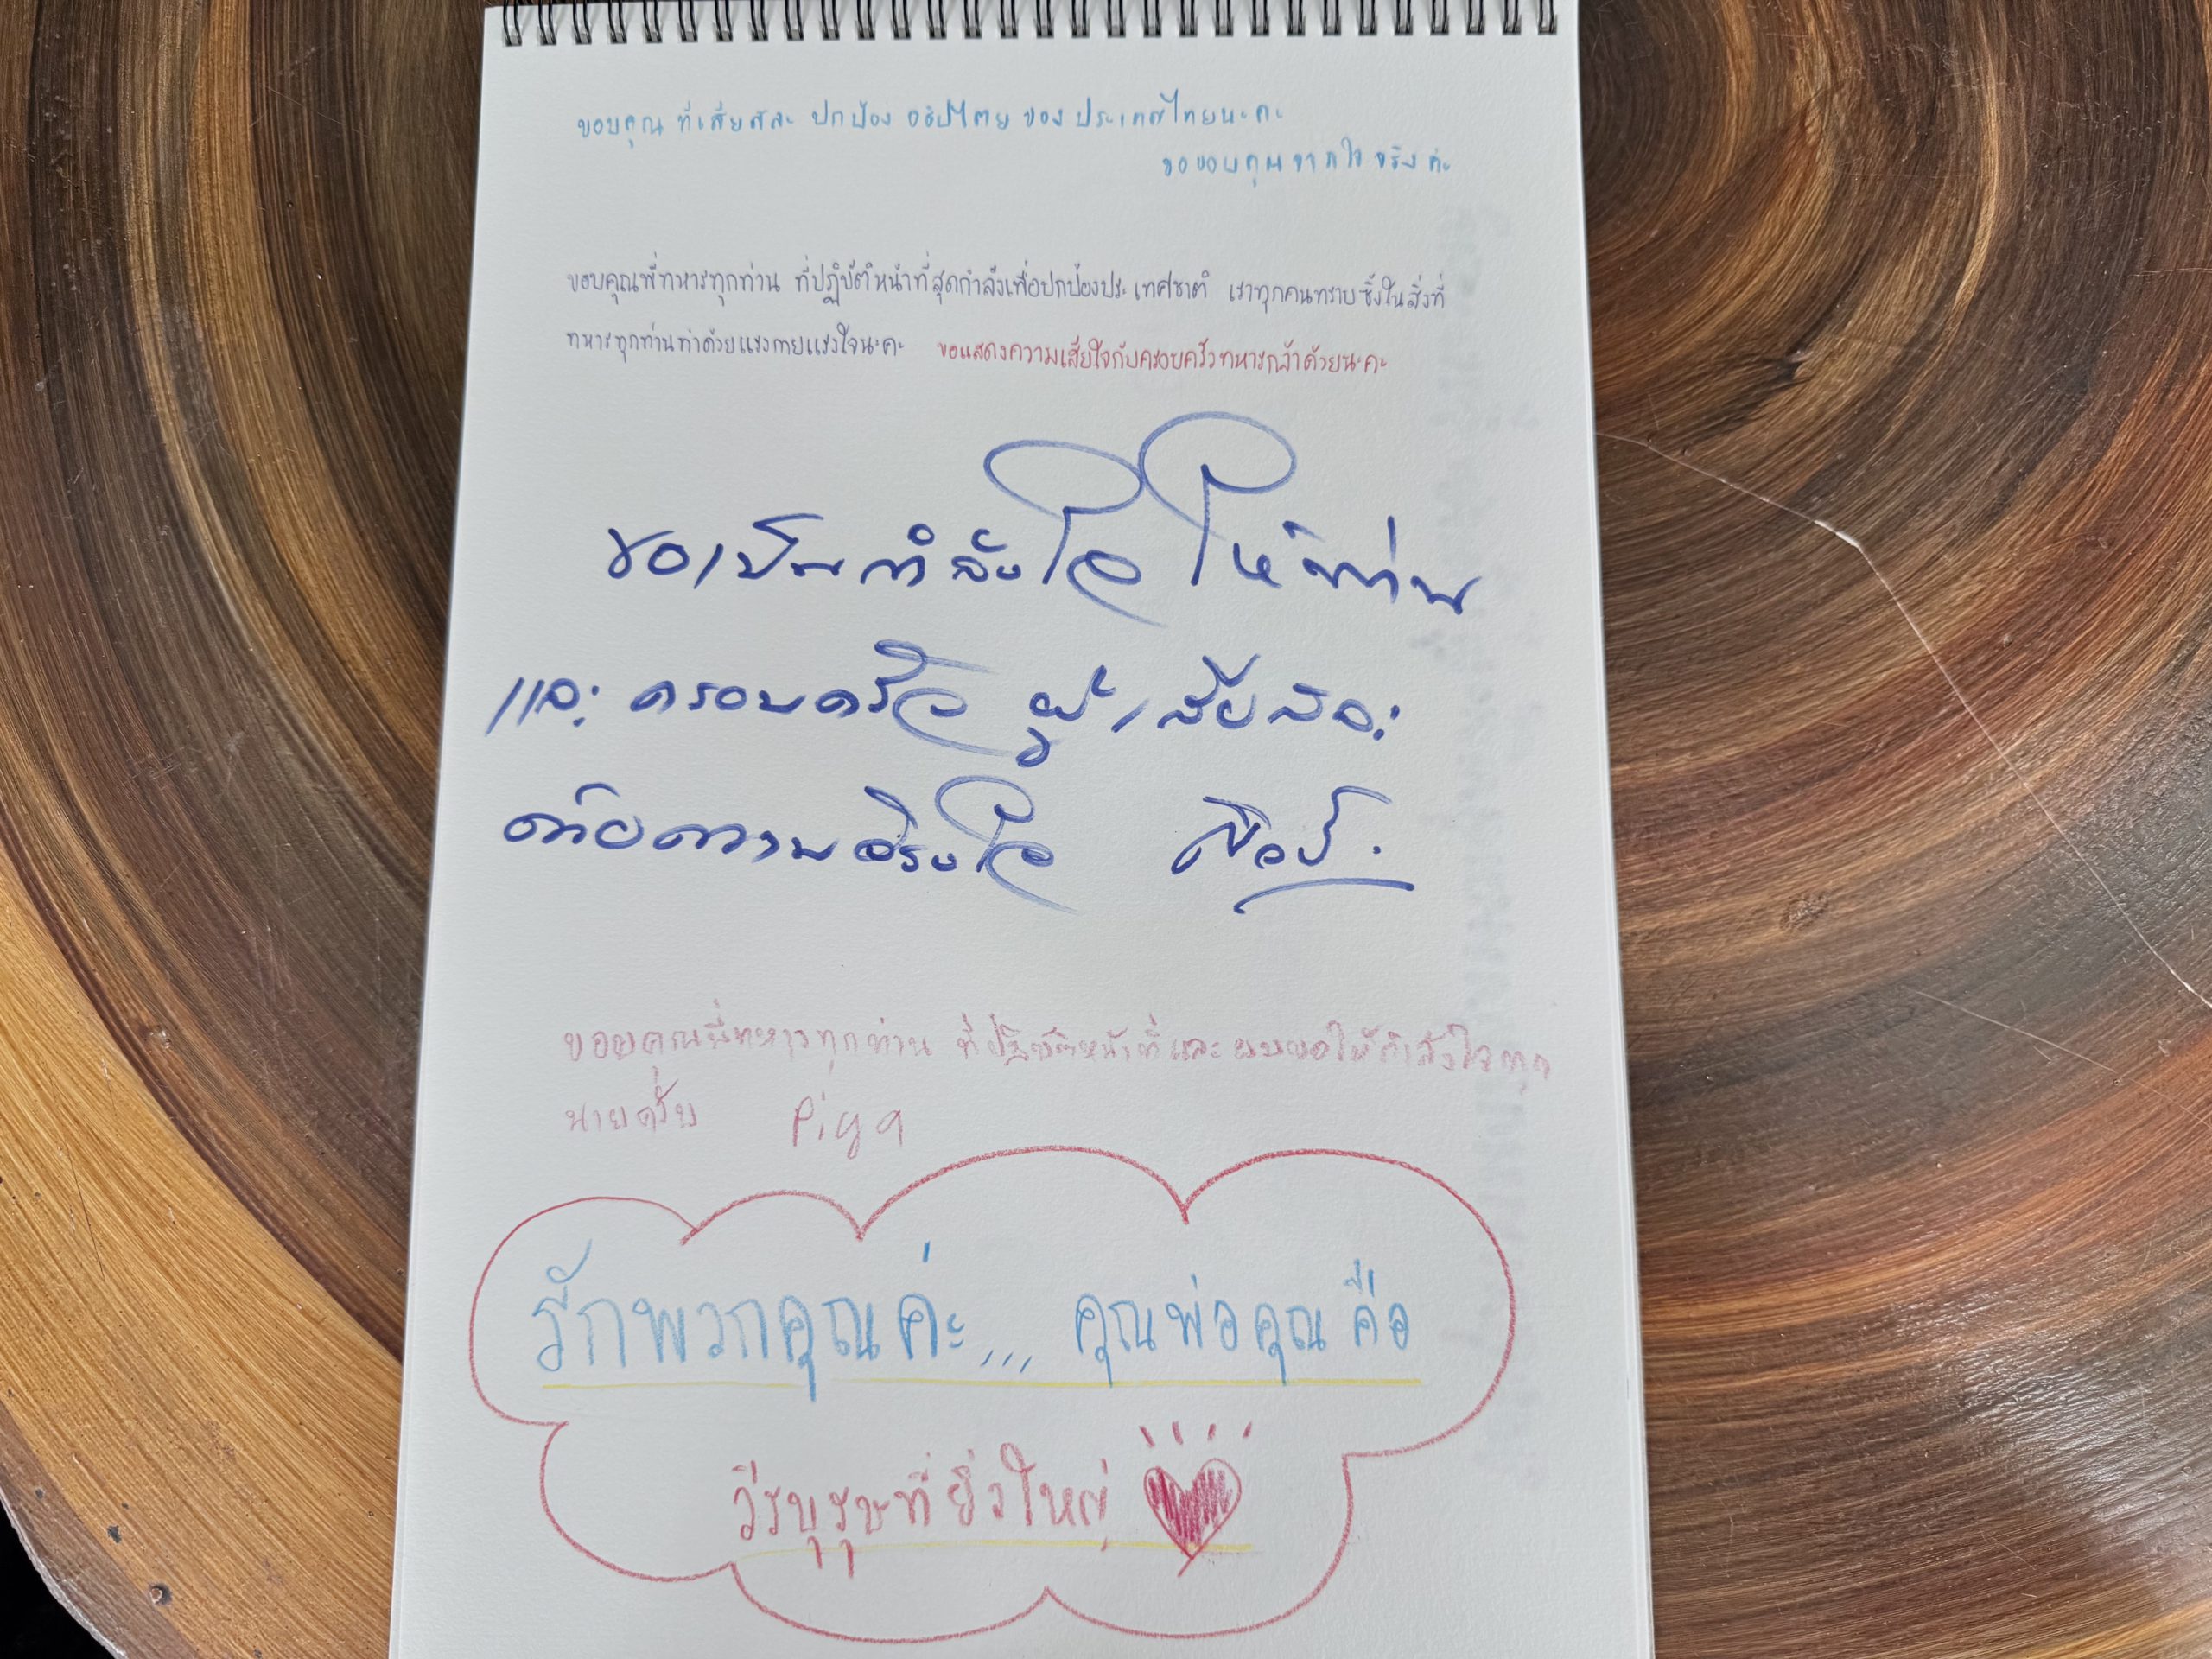 ขอบคุณ ที่เสียสละ ปกป้อง อธิปไตย ของ ประเทศไทยนะคะ
ขอขอบคุณจากใจจริงค่ะ
ขอบคุณพี่ทหารทุกท่าน ที่ปฏิบัติหน้าที่สุดกำลังเพื่อปกป้องประเทศชาติ เราทุกคนทราบซึ้งในสิ่งที่
ทหารทุกท่านทำด้วยแรงกายแรงใจนะคะ ขอแสดงความเสียใจกับครอบครัวทหารกล้าด้วยนะคะ
ขอเป็นกำลังใจให้ท่าน
และครอบครัว ผู้เสียสละ
ด้วยความจริงใจ
ขอบคุณพี่ทหารทุกท่าน ที่ปฏิบัติหน้าที่และผมขอให้กำลังใจทุก
นายครับ Piya
รักพวกคุณค่ะ,,, คุณพ่อคุณ คือ
วีรบุรุษที่ยิ่งใหญ่